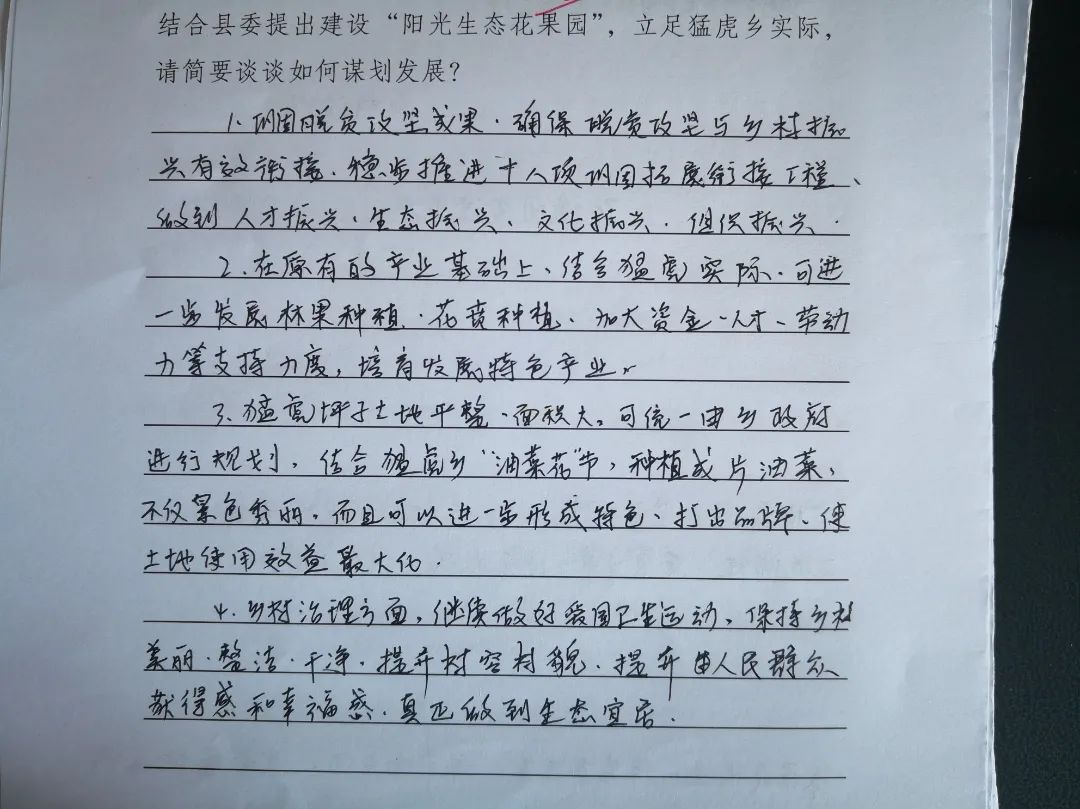 结合县委提出建设“阳光生态花果园”，立足猛虎乡实际，
请简要谈谈如何谋划发展？
1.巩固脱贫攻坚成果，确保脱贫攻坚与乡村振
兴有效衔接，稳步推进十八项巩固拓展衔接工程、
做到人才振兴、生态振兴、文化振兴、组织振兴、
2.在原有的产业基础上，结合猛虎实际，可进
一步发展林果种植、花黄种植、加大资金、人才、带动
力等支持力度，培育发展特色产业。
3.猛虎坪子土地平整、面积大，可统一由乡政府
进行规划，结合猛虎乡“油菜花”节，种植成片油菜，
不仅景色秀丽，而且可以进一步形成特色、打出品牌、使
土地使用效益最大化.
4.乡村治理方面，继续做好爱国卫生运动，保持乡村
美丽、整洁、干净，提升村容村貌，提升由人民群众
获得感和幸福感，真正做到生态宜居.